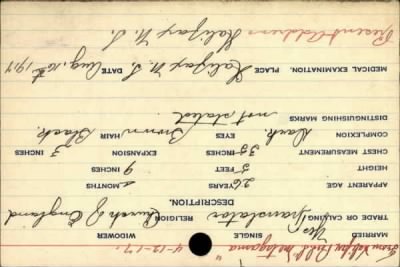 From Halifax per "Metagama" 4-12-17.
MARRIED Yes SINGLE WIDOWER
TRADE OR CALLING Translator RELIGION Church of England
DESCRIPTION.
APPARENT AGE 26 YEARS MONTHS
HEIGHT 5 9
CHEST MEASUREMENT 35 INCHES EXPANSION 3 INCHES
COMPLEXION Dark. EYES Brown HAIR Black.
DISTINGUISHING MARKS not stated.
MEDICAL EXAMINATION. PLACE Halifax N. S. DATE Aug. 10th 1917
Present Address Halifax N. S.